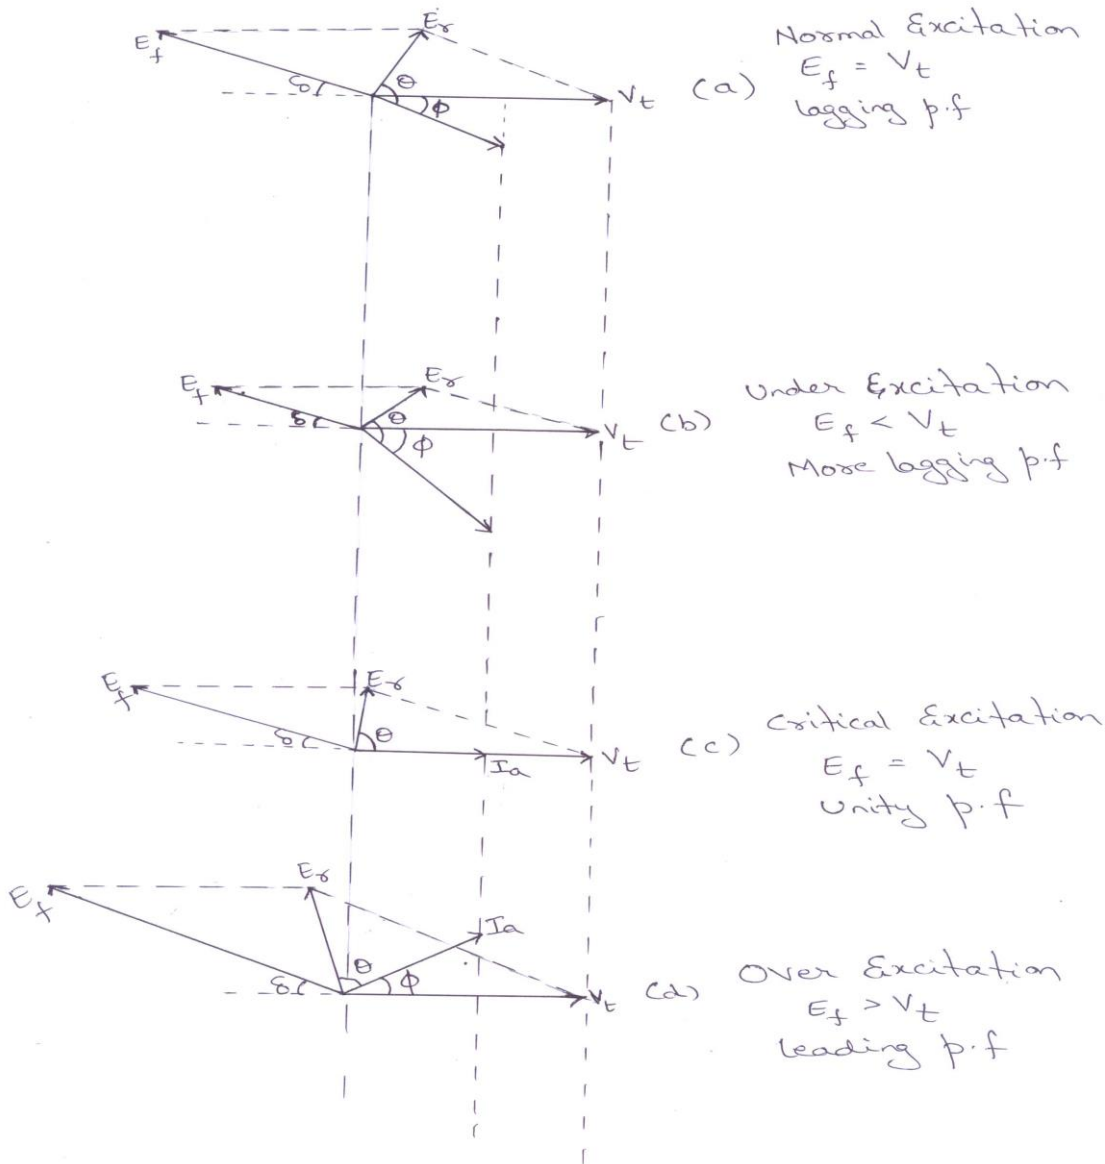 E_f
E_r
δ
θ
ϕ
V_t
(a)
Normal Excitation
E_f = V_t
lagging p.f
E_f
E_r
δ
θ
ϕ
V_t
(b)
Under Excitation
E_f < V_t
More lagging p.f
E_f
E_r
δ
θ
I_a
V_t
(c)
Critical Excitation
E_f = V_t
Unity p.f
E_f
E_r
δ
θ
ϕ
I_a
V_t
(d)
Over Excitation
E_f > V_t
leading p.f